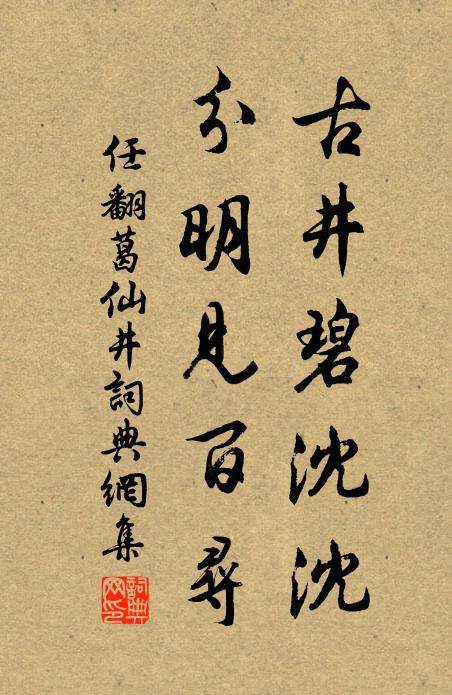 古井碧沈沈
分明見百尋
任翻葛仙井詞典網集
詞典網印